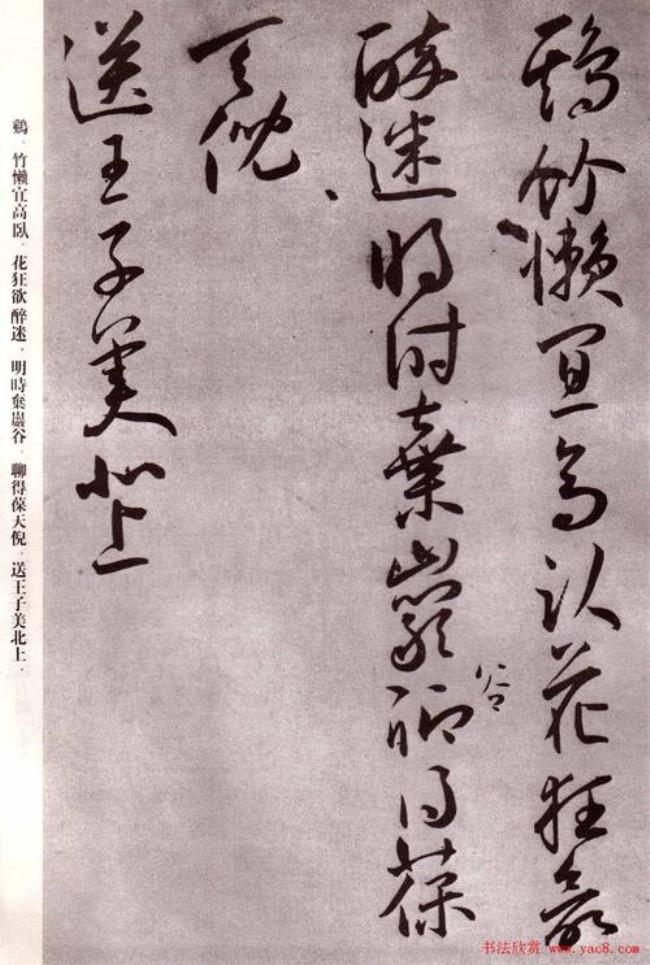 鵎竹懶宜高臥花狂欲
醉迷明時棄巖聊得葆
谷
天倪
送王子美北上
鵎．竹懶宜高臥．花狂欲醉迷．明時棄巖谷．聊得葆天倪．送王子美北上．
书法欣赏 www.yac8.com